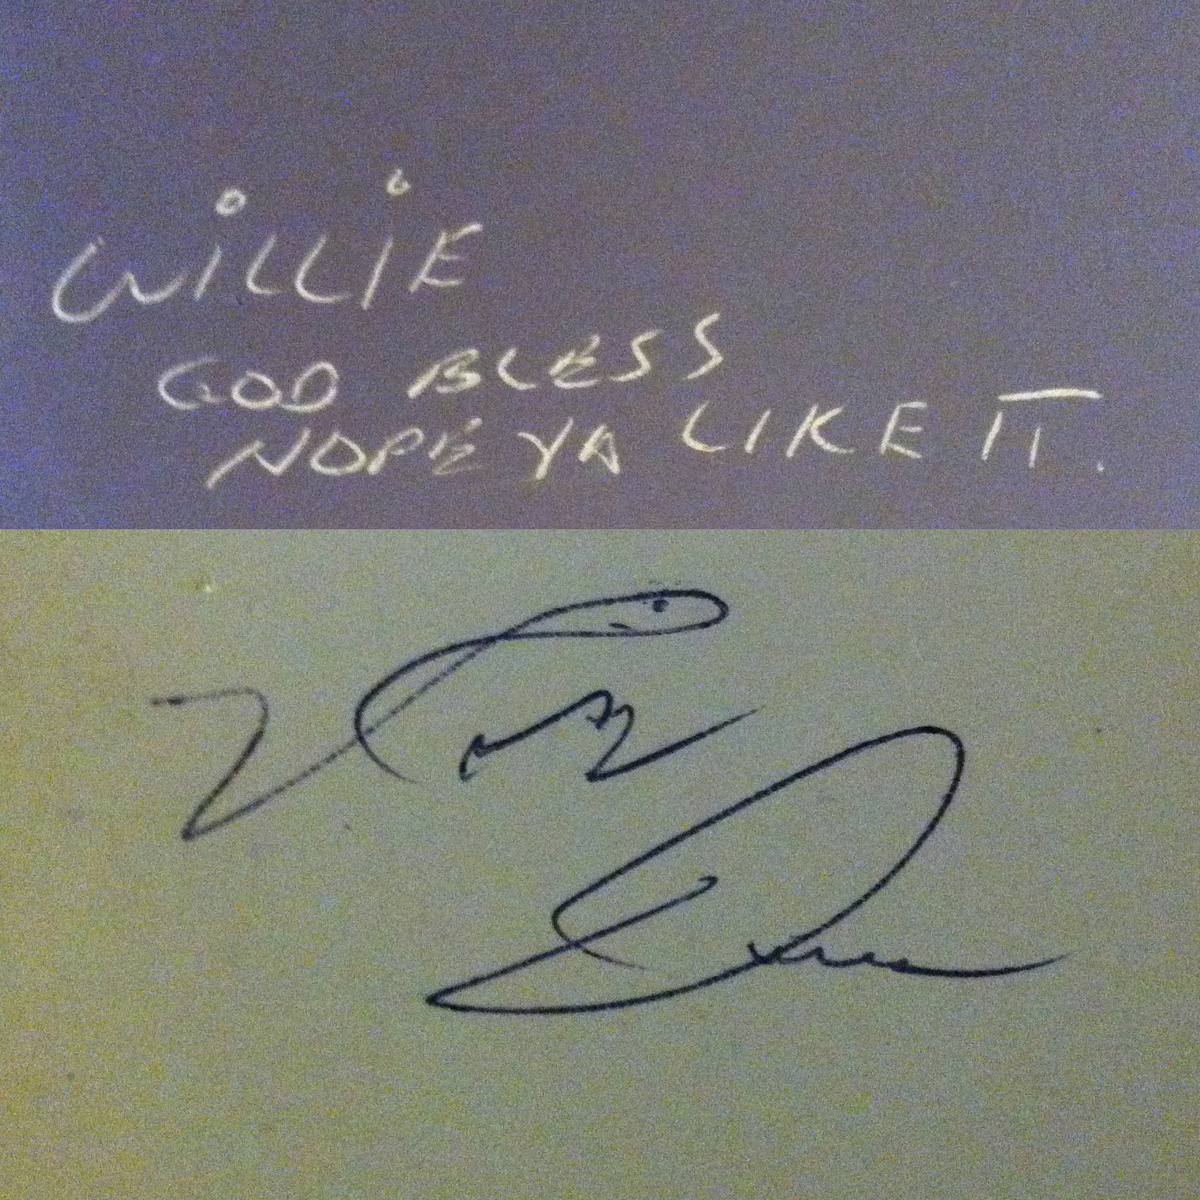 WiLLiE
GOD BLESS
HOPE YA LIKE IT.